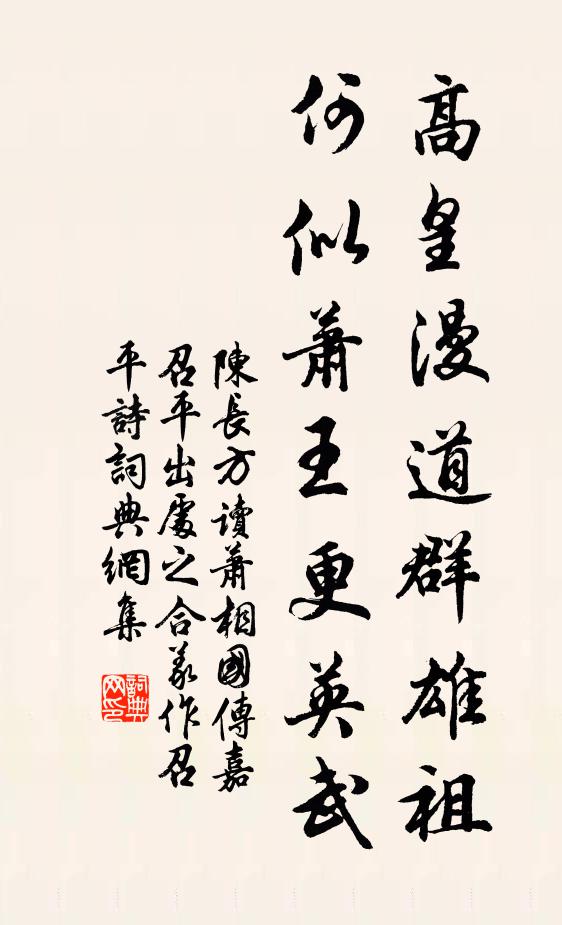 高皇漫道群雄祖
何似蕭王更英武
陳長方讀蕭相國傳嘉
召平出處之合義作召
平詩詞典網集
詞典
网印